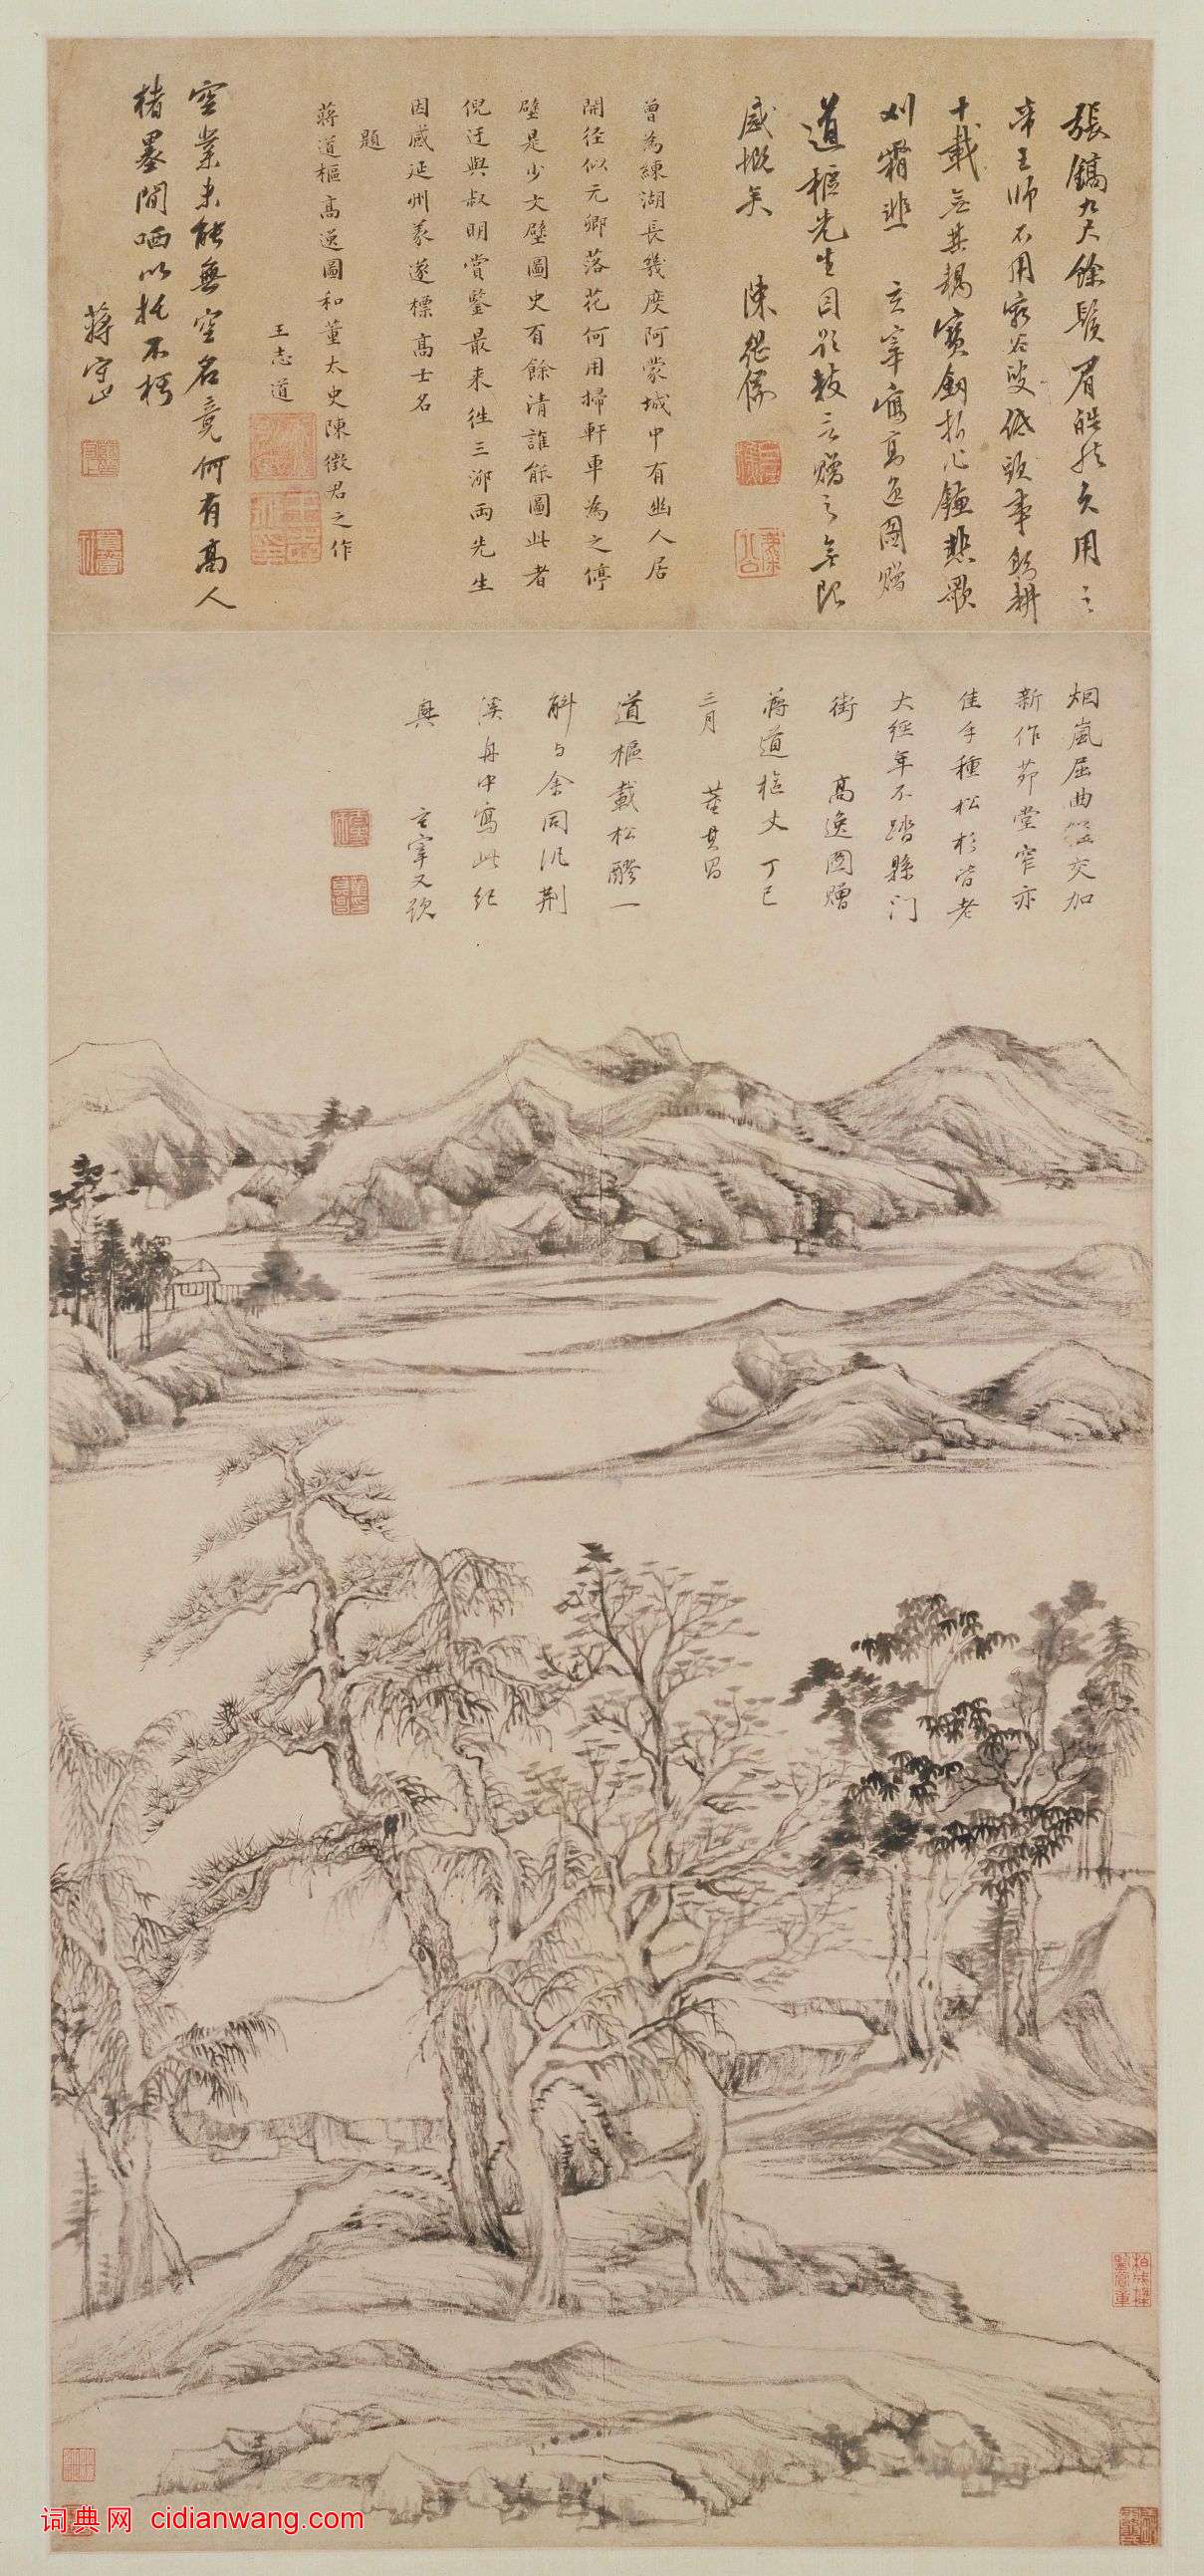 張鎬九尺餘鬚眉皓於久用之
帝王師不用窮谷叟低頭事躬耕
十載
刈霜韭 玄宰寫高逸圖贈
道樞先生因題數言贈之無限
感慨矣 陳繼儒
曾為練湖長幾度阿蒙城中有幽人居
開徑似元卿落花何用掃軒車為之停
壁是少文壁圖史有餘清誰能圖此者
倪迂與叔明賞鑒最來往三泖兩先生
因感延州義遂標高士名
題
蔣道樞高逸圖和董太史陳徵君之作
王志道
空業未能無空名竟何有高人
楮墨間哂以托不朽
蔣守止
烟嵐屈曲徑交加
新作茆堂窄亦
佳手種松杉皆老
大經年不踏縣門
街 高逸圖贈
蔣道樞丈 丁巳
三月 董其昌
道樞載松醪一
斛與余同汎荆
溪舟中寫此紀
興 玄宰又識
词典网 cidianwang.com